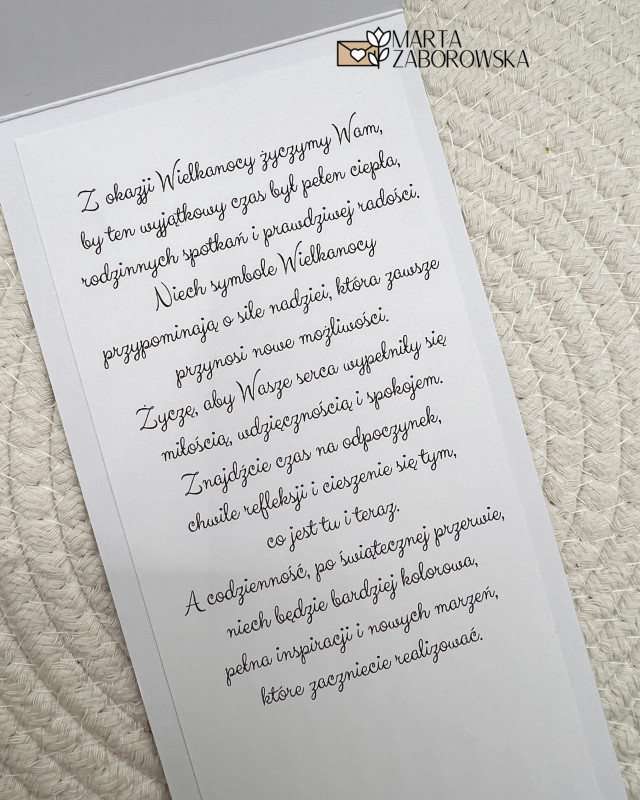 MARTA
ZABOROWSKA
Z okazji Wielkanocy życzymy Wam,
by ten wyjątkowy czas był pełen ciepła,
rodzinnych spotkań i prawdziwej radości.
Niech symbole Wielkanocy
przypominają o sile nadziei, która zawsze
przynosi nowe możliwości.
Życzę, aby Wasze serca wypełniły się
miłością, wdzięcznością i spokojem.
Znajdźcie czas na odpoczynek,
chwile refleksji i cieszenie się tym,
co jest tu i teraz.
A codzienność, po świątecznej przerwie,
niech będzie bardziej kolorowa,
pełna inspiracji i nowych marzeń,
które zaczniecie realizować.